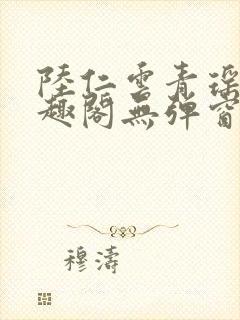 陸仁雲青瑶
趣閣無弹窗
穆濤